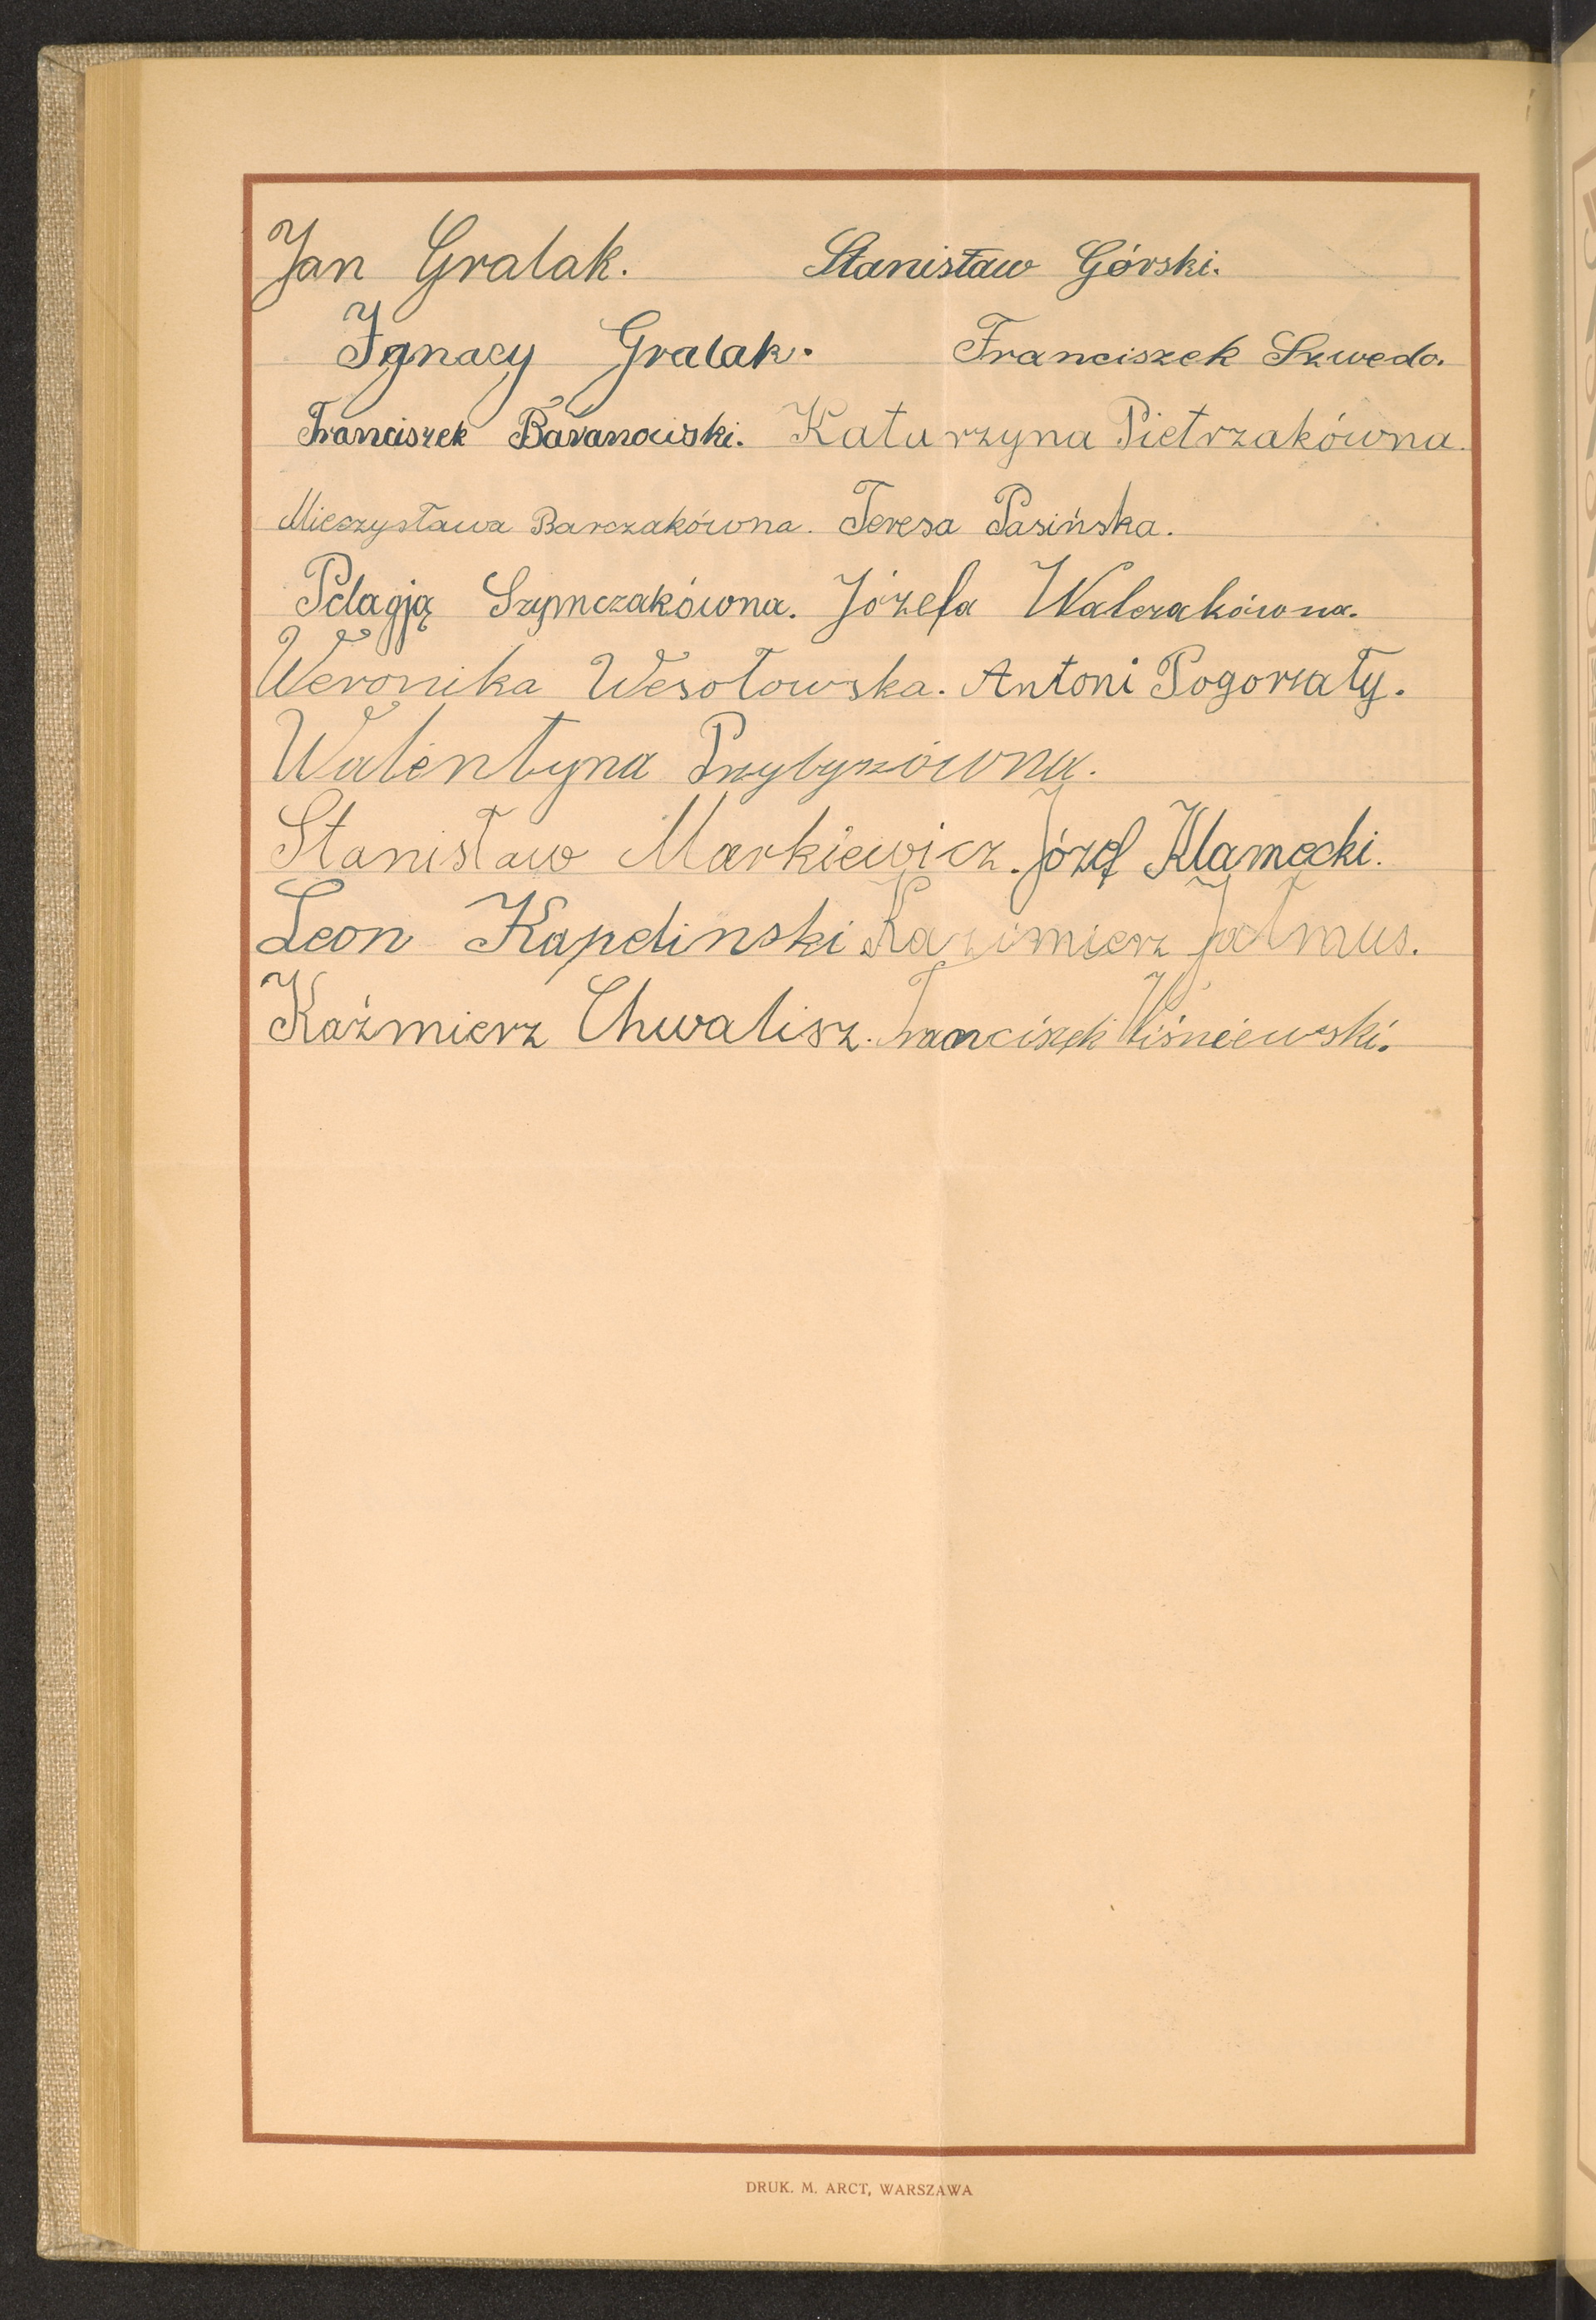 Jan Gralak. Stanisław Górski.
Ignacy Gralak. Franciszek Szweda.
Franciszek Baranowski. Katarzyna Pietrzakówna.
Mieczysława Barczakówna. Teresa Pasińska.
Pelagją Szymczakówna. Józefa Walczakówna.
Weronika Wesołowska. Antoni Pogorzały.
Walentyna Przybyszówna.
Stanisław Markiewicz. Józef Klamecki.
Leon Kapelinski Kazimierz Jałmus.
Kaźmierz Chwalisz. Franciszek Wiśniewski.
DRUK. M. ARCT, WARSZAWA